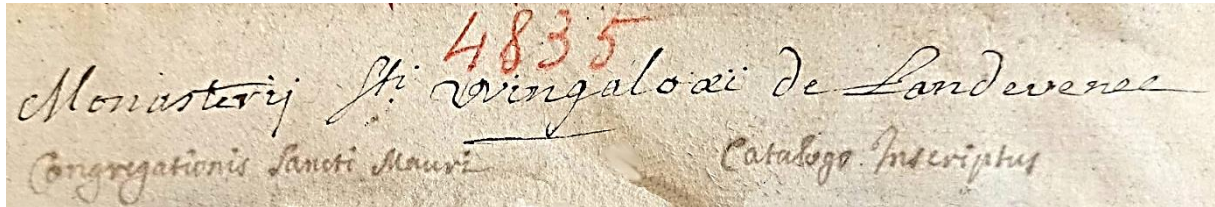 4835
Monasterij Sti Wingaloæi de Landevenec
Congregationis Sancti Mauri Catalogo Inscriptus